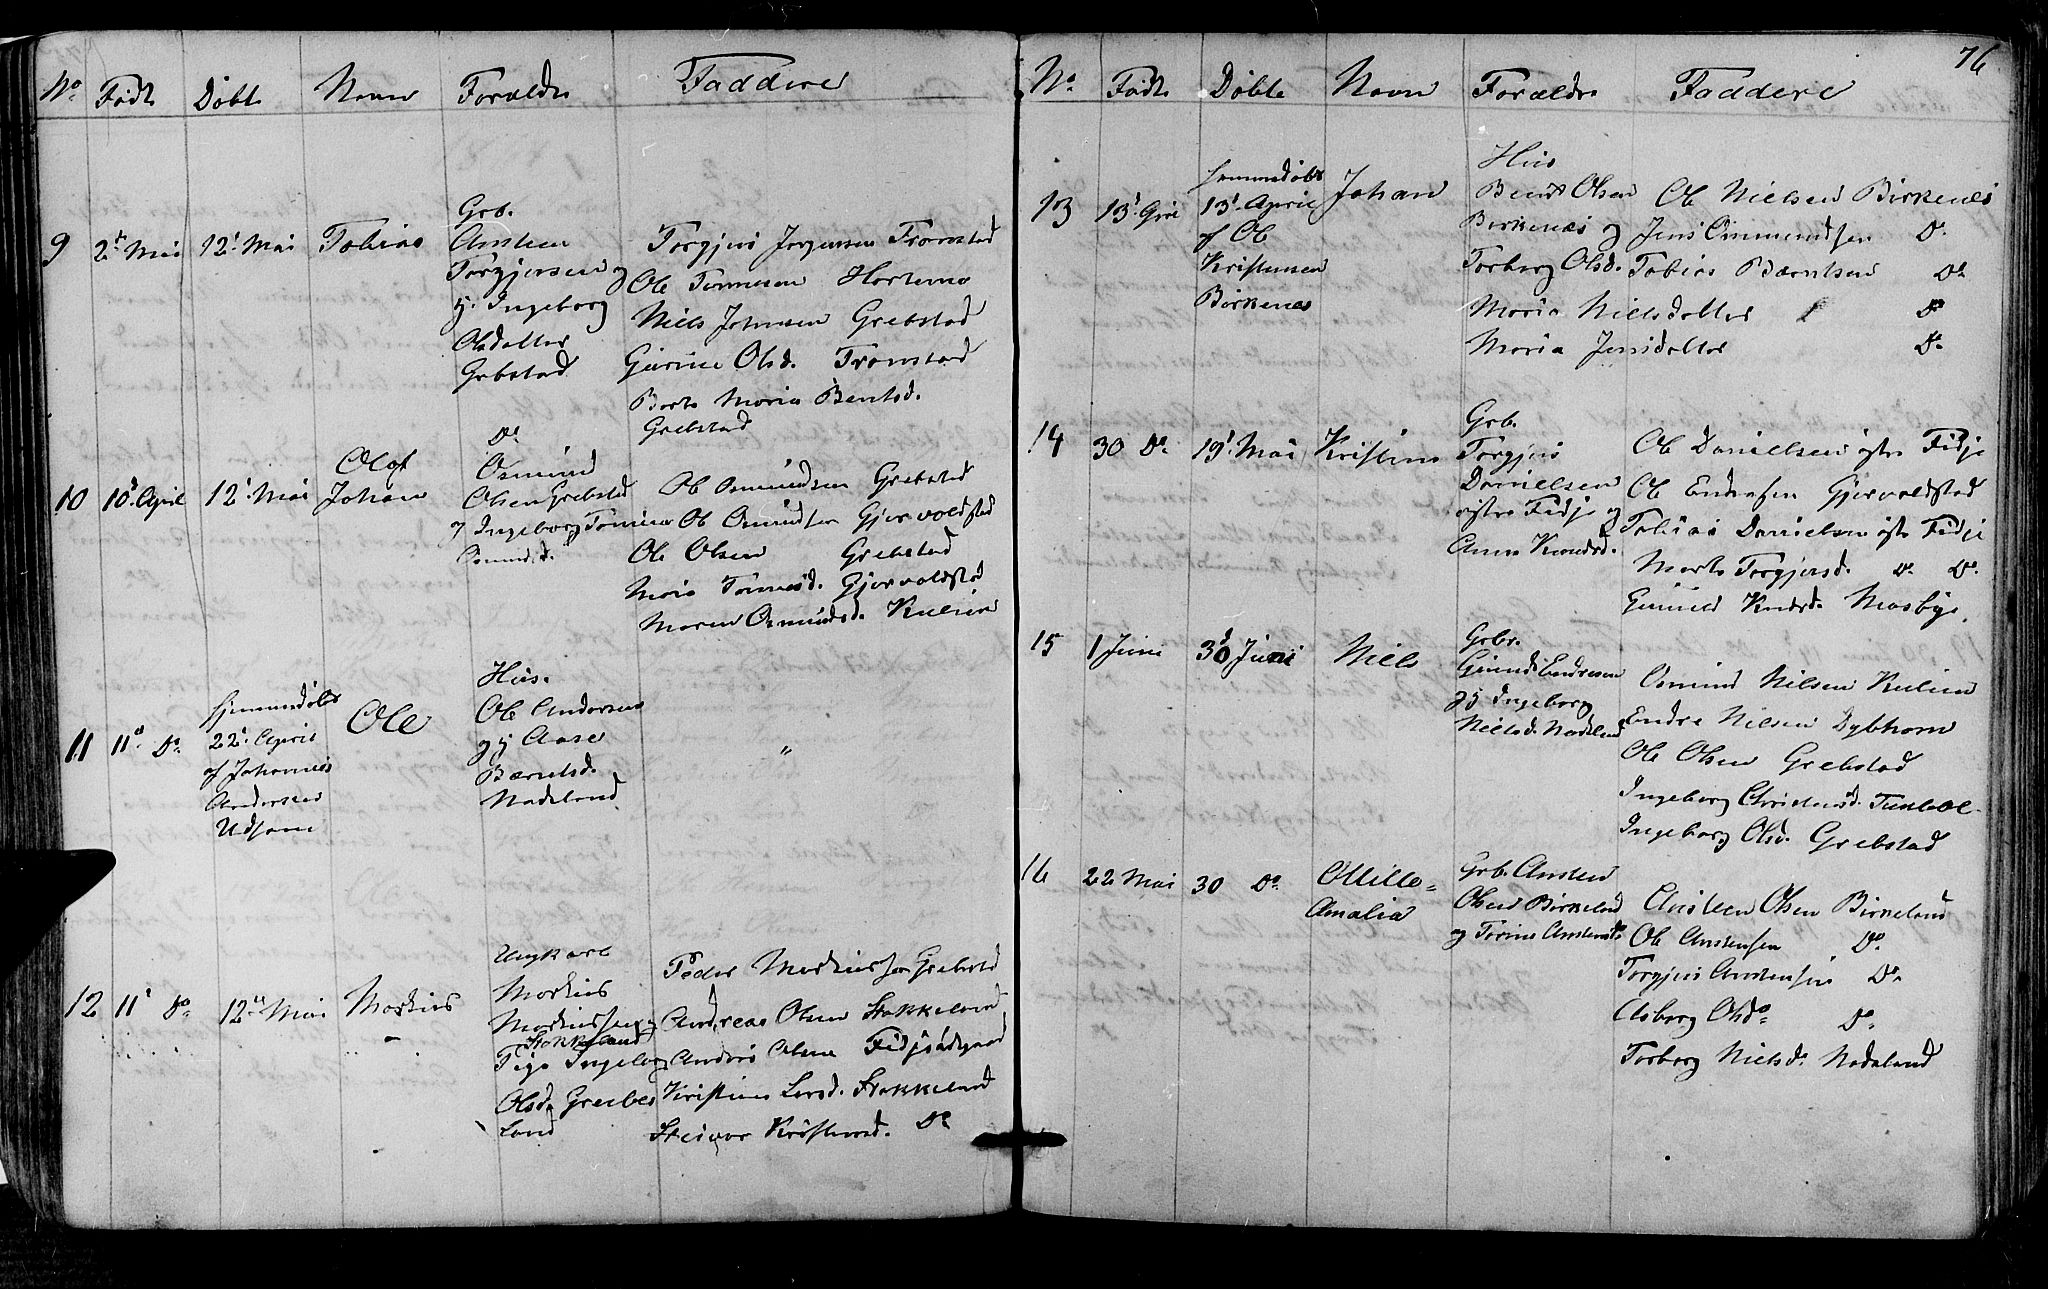 No Født Døbt Navn Forældre Faddere
9 2den Mai 12te Mai Tobias
Grb.
Torgjersen og
h. Ingeborg
Olsdatter
Grbstad
Torgjus Jørgensen Tronstad
Ole Tønnesen Hortemo
Niels Johnsen Grebstad
Gurine Olsd. Tronstad
Berte Maria Bentsd.
Grebstad
10 10de April 12te Mai
Olaf
Johan
Do
Osmund
Olsen Grebstad
Ole Osmundsen Grebstad
Ole Osmundsen Gjervoldstad
Ole Olsen Grebstad
Maria Tønnesd. Gjervoldstad
Maren Osmundsd. Kulien
11 11te Do
hjemmedøbt
22de April
af Johannes
Andersen
Ole
Huus.
Ole Andersen
og h. Aase
Nodeland
"
12 11te Do 12te Mai Markus
Ungkarl
Markus
Stokkeland
Pige Ingeborg
Olsd.
land
Peder Markussen Grebstad
Andreas Olsen Stokkeland
Anders Olsen
Kristine Larsd. Stokkeland
Kristensd. Do
76
No Født Døbte Navn Forældre Faddere
13 13de April
hjemmedøbt
13de April
af Ole
Kristensen
Birkenes
Johan
Huus
Bendt Olsen
Birkenæs og
Torborg Olsd.
Ole Nielsen Birkenes
Jens Ommundsen Do
Tobias Berntsen Do
Maria Nielsdatter Do
Maria Jensdatter Do
14 30 Do 19de Mai Kristine
Grb.
Torgjus
Danielsen
østre Fidje og
Anne Knudsd.
Ole Danielsen østre Fidje
Ole Endresen Gjervoldstad
Tobias Danielsen østre Fidje
Marte Torgjersd. Do Do
Gunild Knudsd. Mosbye.
15 1 Juni 30 Juni Niels
Grbr.
Gunder Endresen
og h. Ingeborg
Nielsd. Nodeland
Osmund Nilsen Kulien
Endre Nilsen Dybhom
Ole Olsen Grebstad
Ingeborg Christensd.
Ingeborg Olsd. Grebstad
16 22 Mai 30 Do
Amalia
Grb. Ansten
Olsen Birkeland
og Torine Anstensd.
Ansteen Olsen Birkeland
Ole Anstensen Do
Torgjus Anstensen Do
Asborg Olsd. Do
Torborg Nielsd. Nodeland